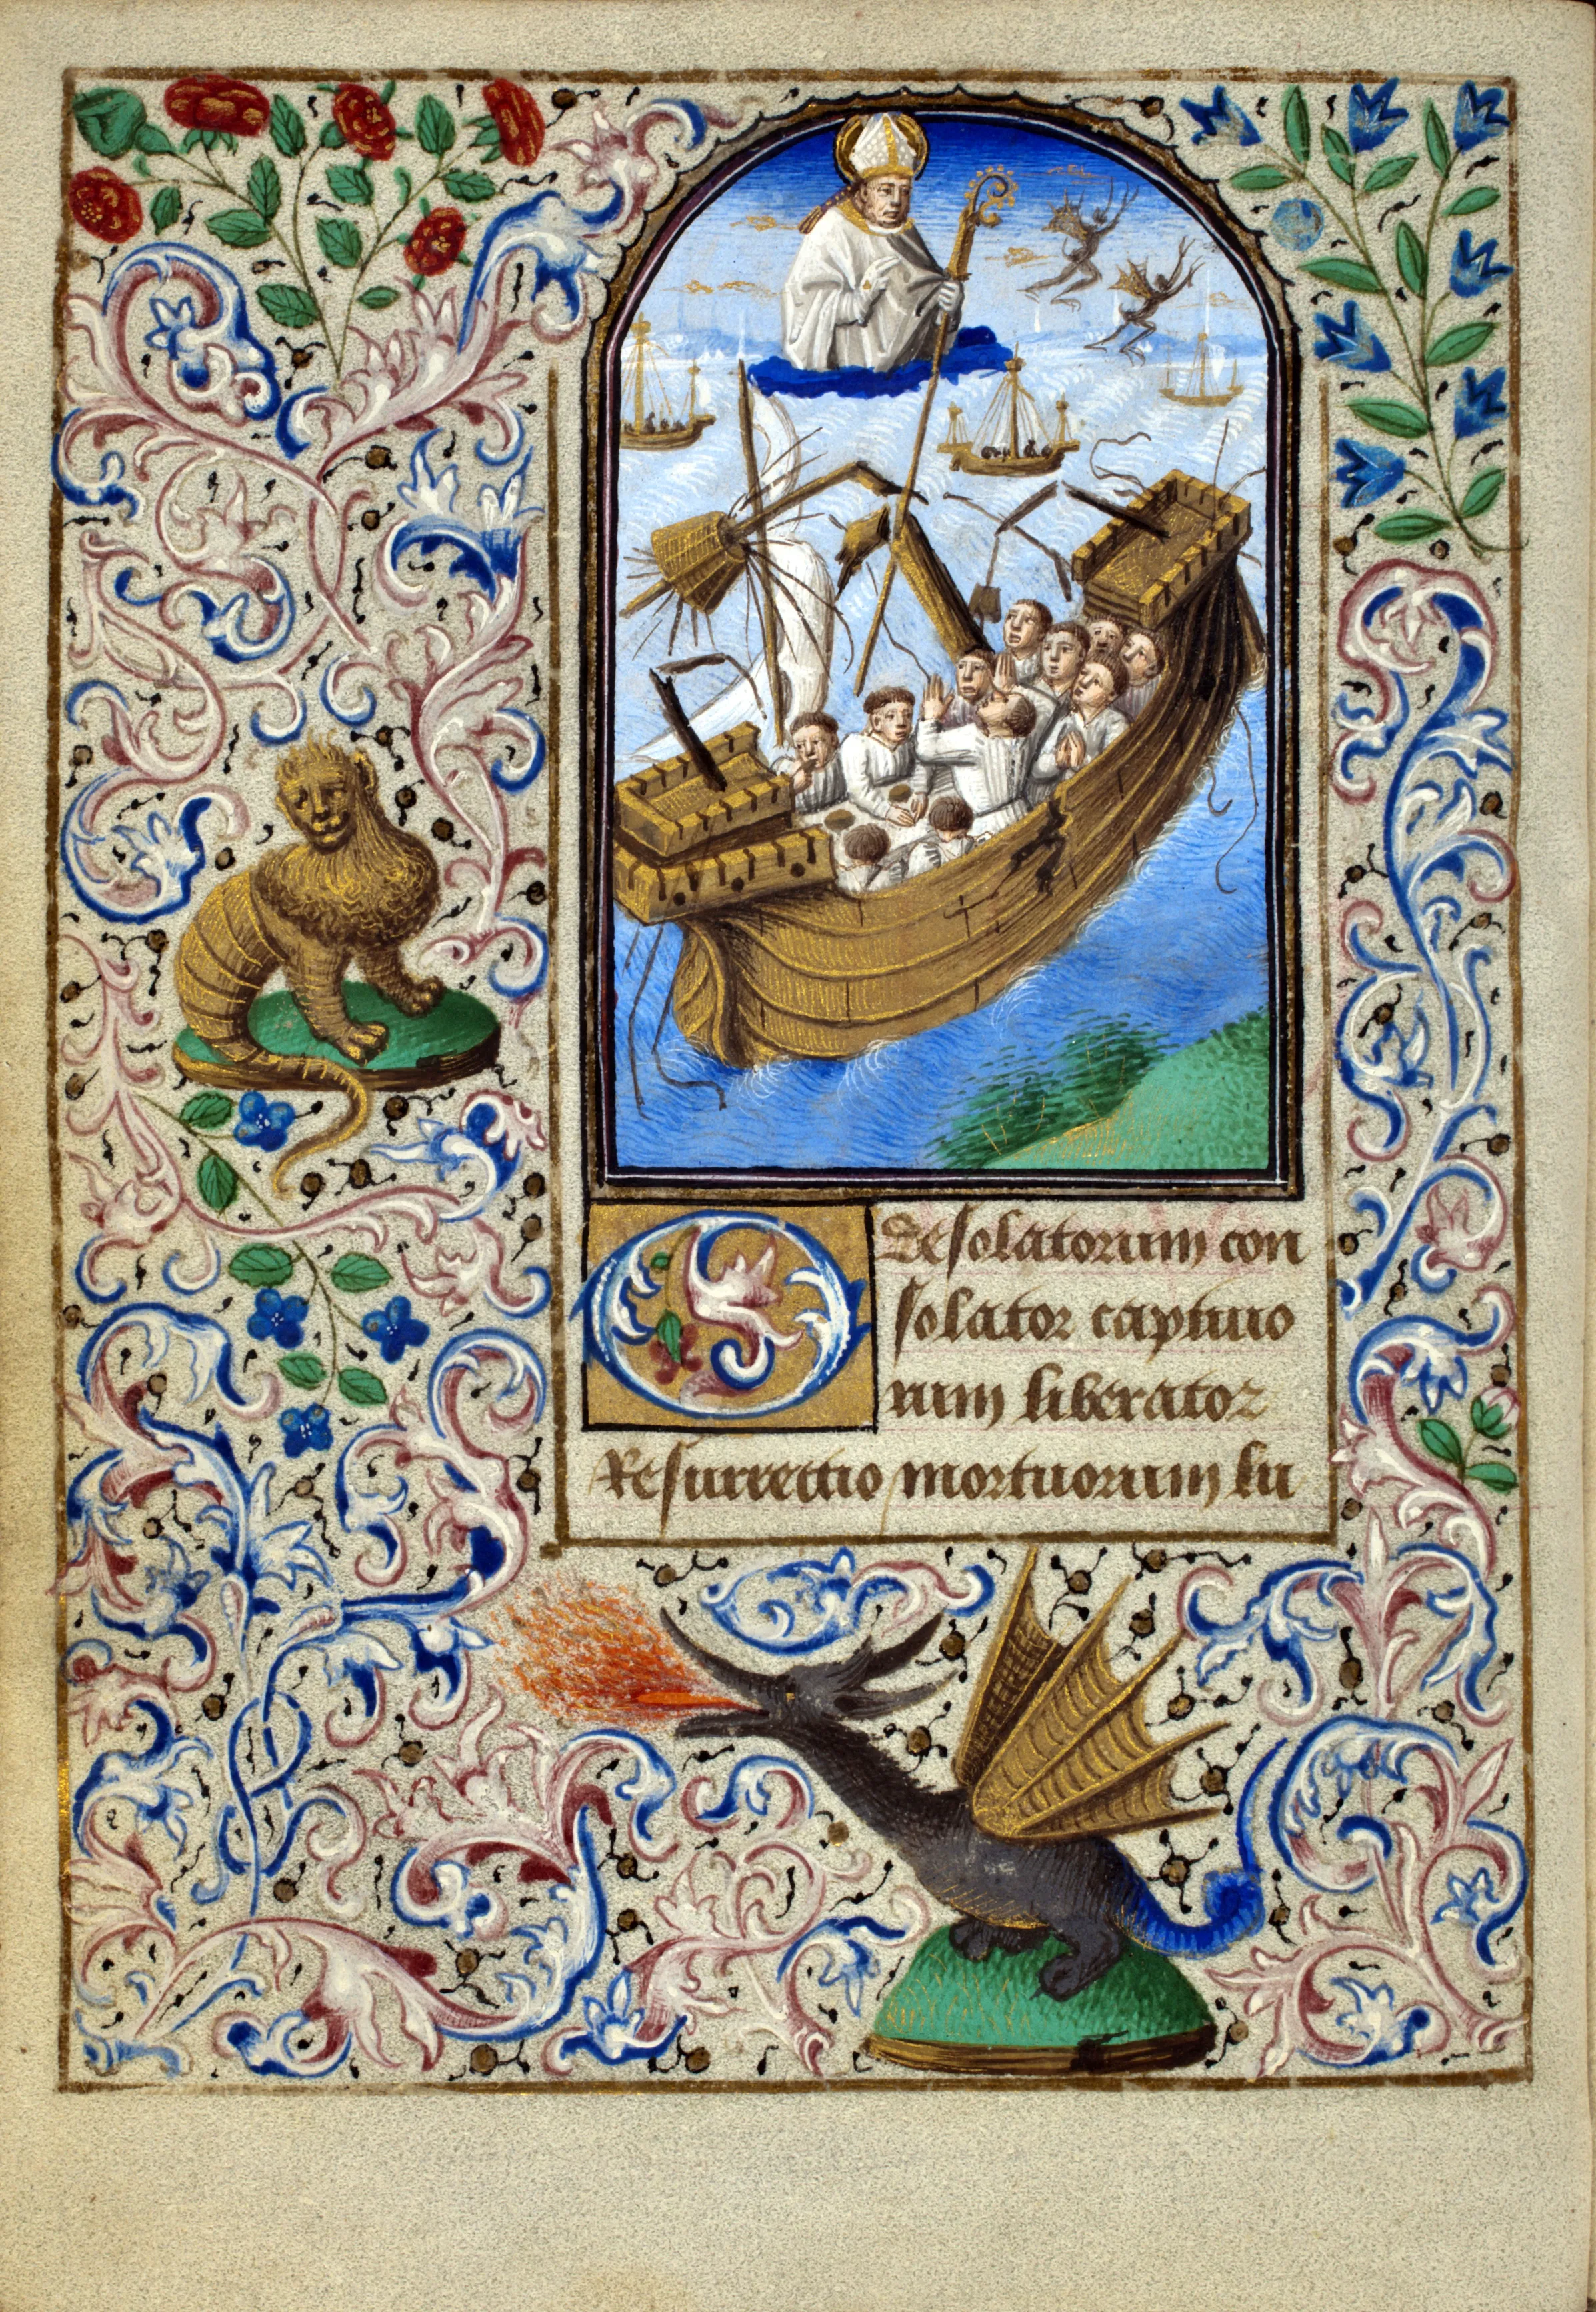 O desolatorum con
solator captiuo
rum liberator
Resurrectio mortuorum lu